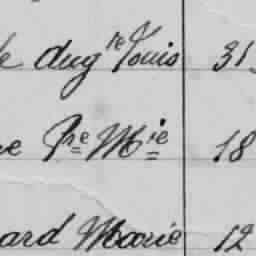 le Aug^te Louis 31
ne P^re M^ie 18
ard Marie 12